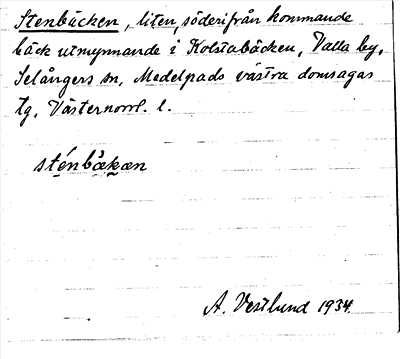 Stenbäcken, liten, söderifrån kommande
bäck utmynnande i Kolstabäcken, Valla by,
Selångers sn, Medelpads västra domsagas
tg, Västernorrl. l.
sténbäkæn
A. Vestlund 1934